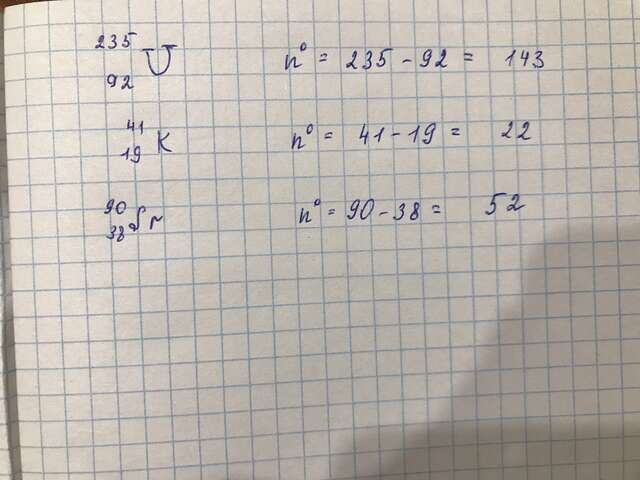 ²³⁵₉₂U n⁰ = 235 - 92 = 143
⁴¹₁₉K n⁰ = 41 - 19 = 22
⁹⁰₃₈Sr n⁰ = 90 - 38 = 52